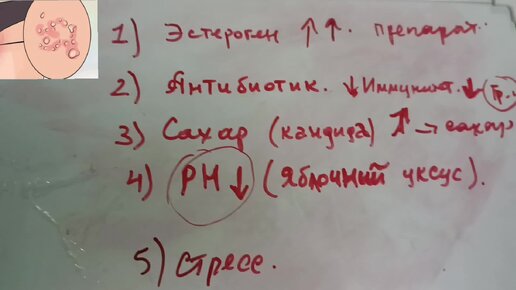 1) Эстероген ↑↑. препарат.
2) Антибиотик. ↓ Иммунит. ↓
3) Сахар (кандида) ↑ → сахар
4) PH ↓ (Яблочний уксус).
5) Стресс.